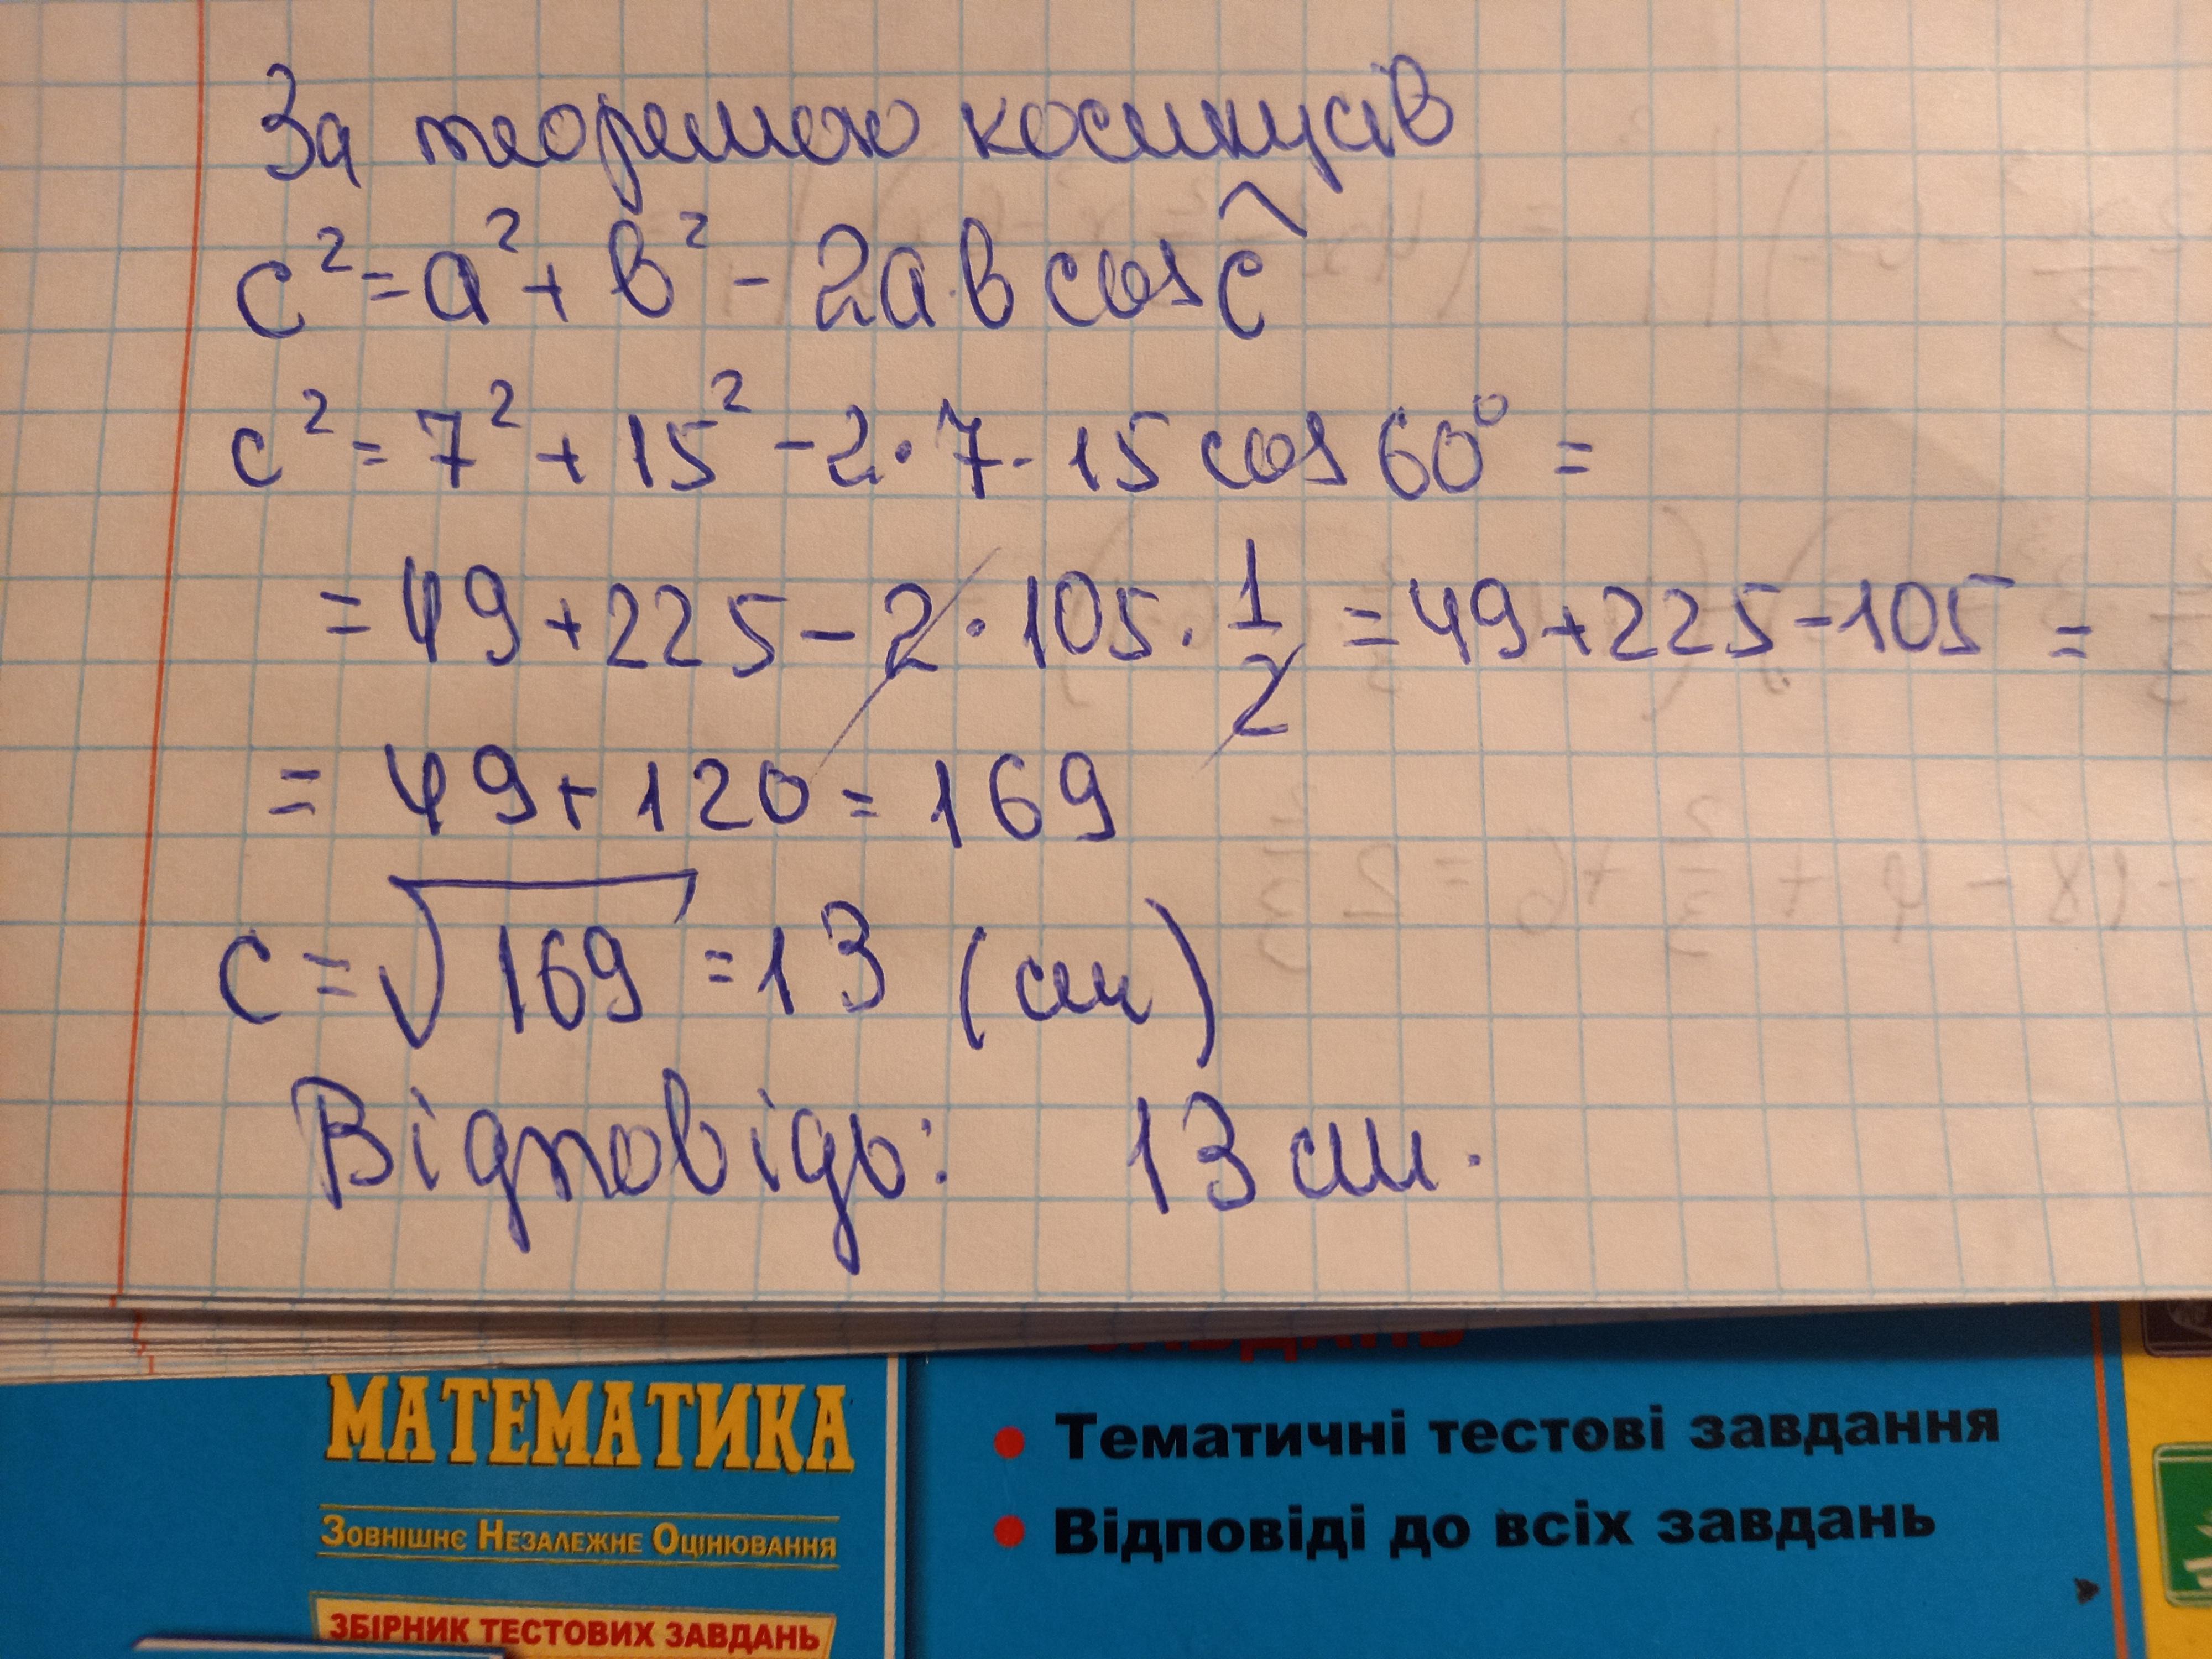 За теоремою косинусів
c² = a² + b² - 2ab cos ĉ
c² = 7² + 15² - 2 · 7 · 15 cos 60° =
= 49 + 225 - 2 · 105 · 1/2 = 49 + 225 - 105 =
= 49 + 120 = 169
c = √169 = 13 (см)
Відповідь: 13 см.
МАТЕМАТИКА
ЗОВНІШНЄ НЕЗАЛЕЖНЕ ОЦІНЮВАННЯ
ЗБІРНИК ТЕСТОВИХ ЗАВДАНЬ
ЗАВДАНЬ
• Тематичні тестові завдання
• Відповіді до всіх завдань